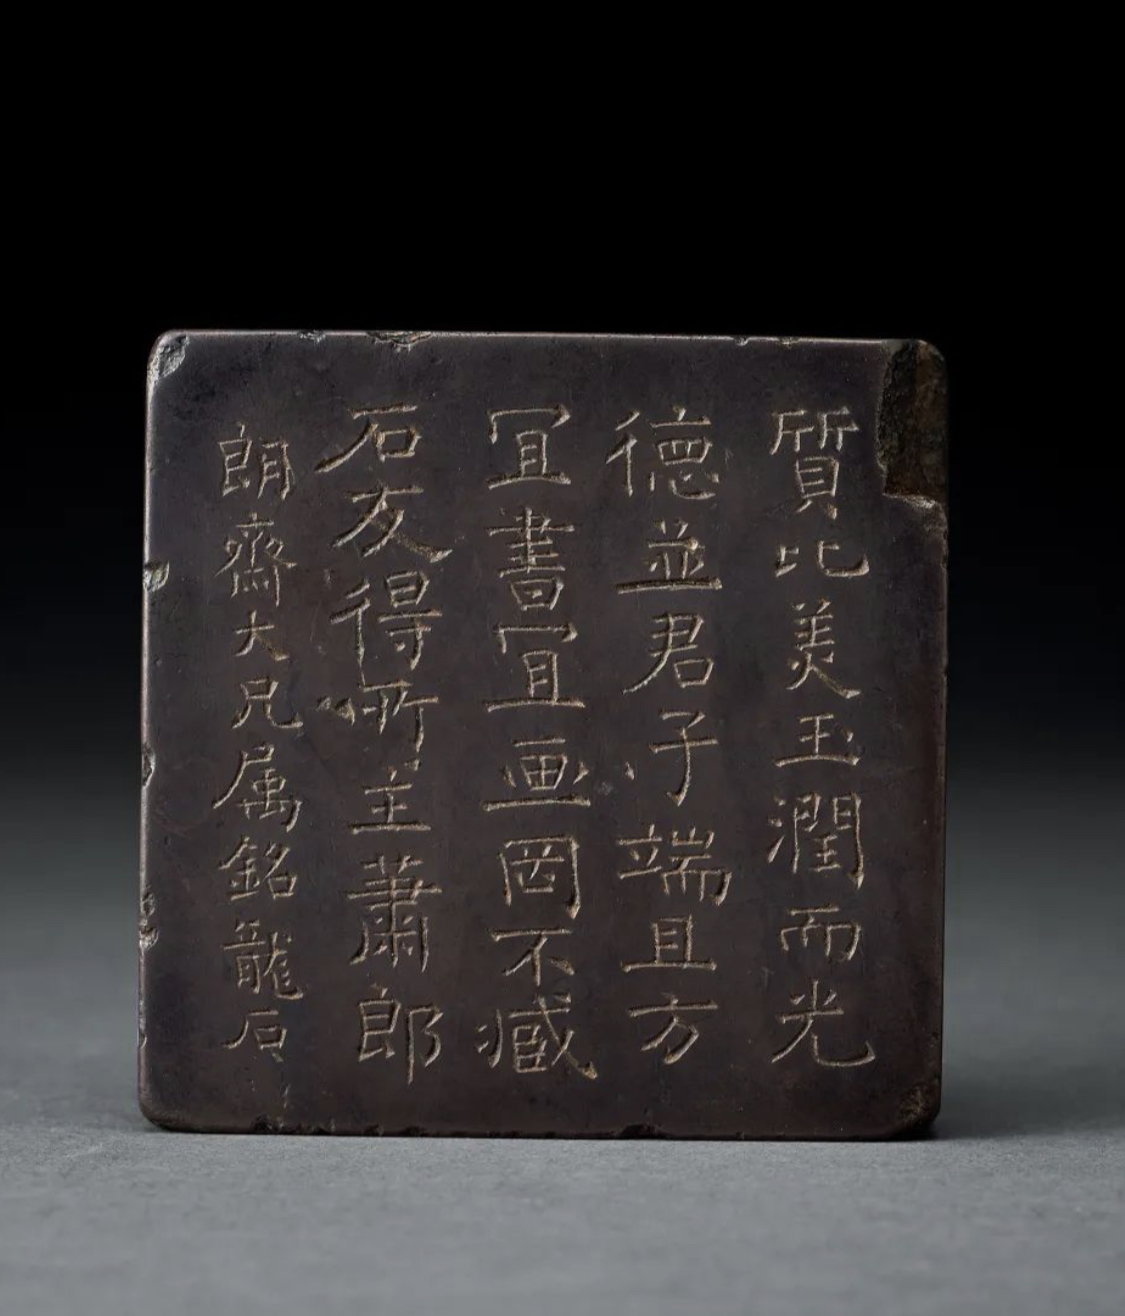 質比美玉潤而光
德並君子端且方
冝書冝画罔不臧
石友得所主蕭郎
朗齋大兄属銘龍石